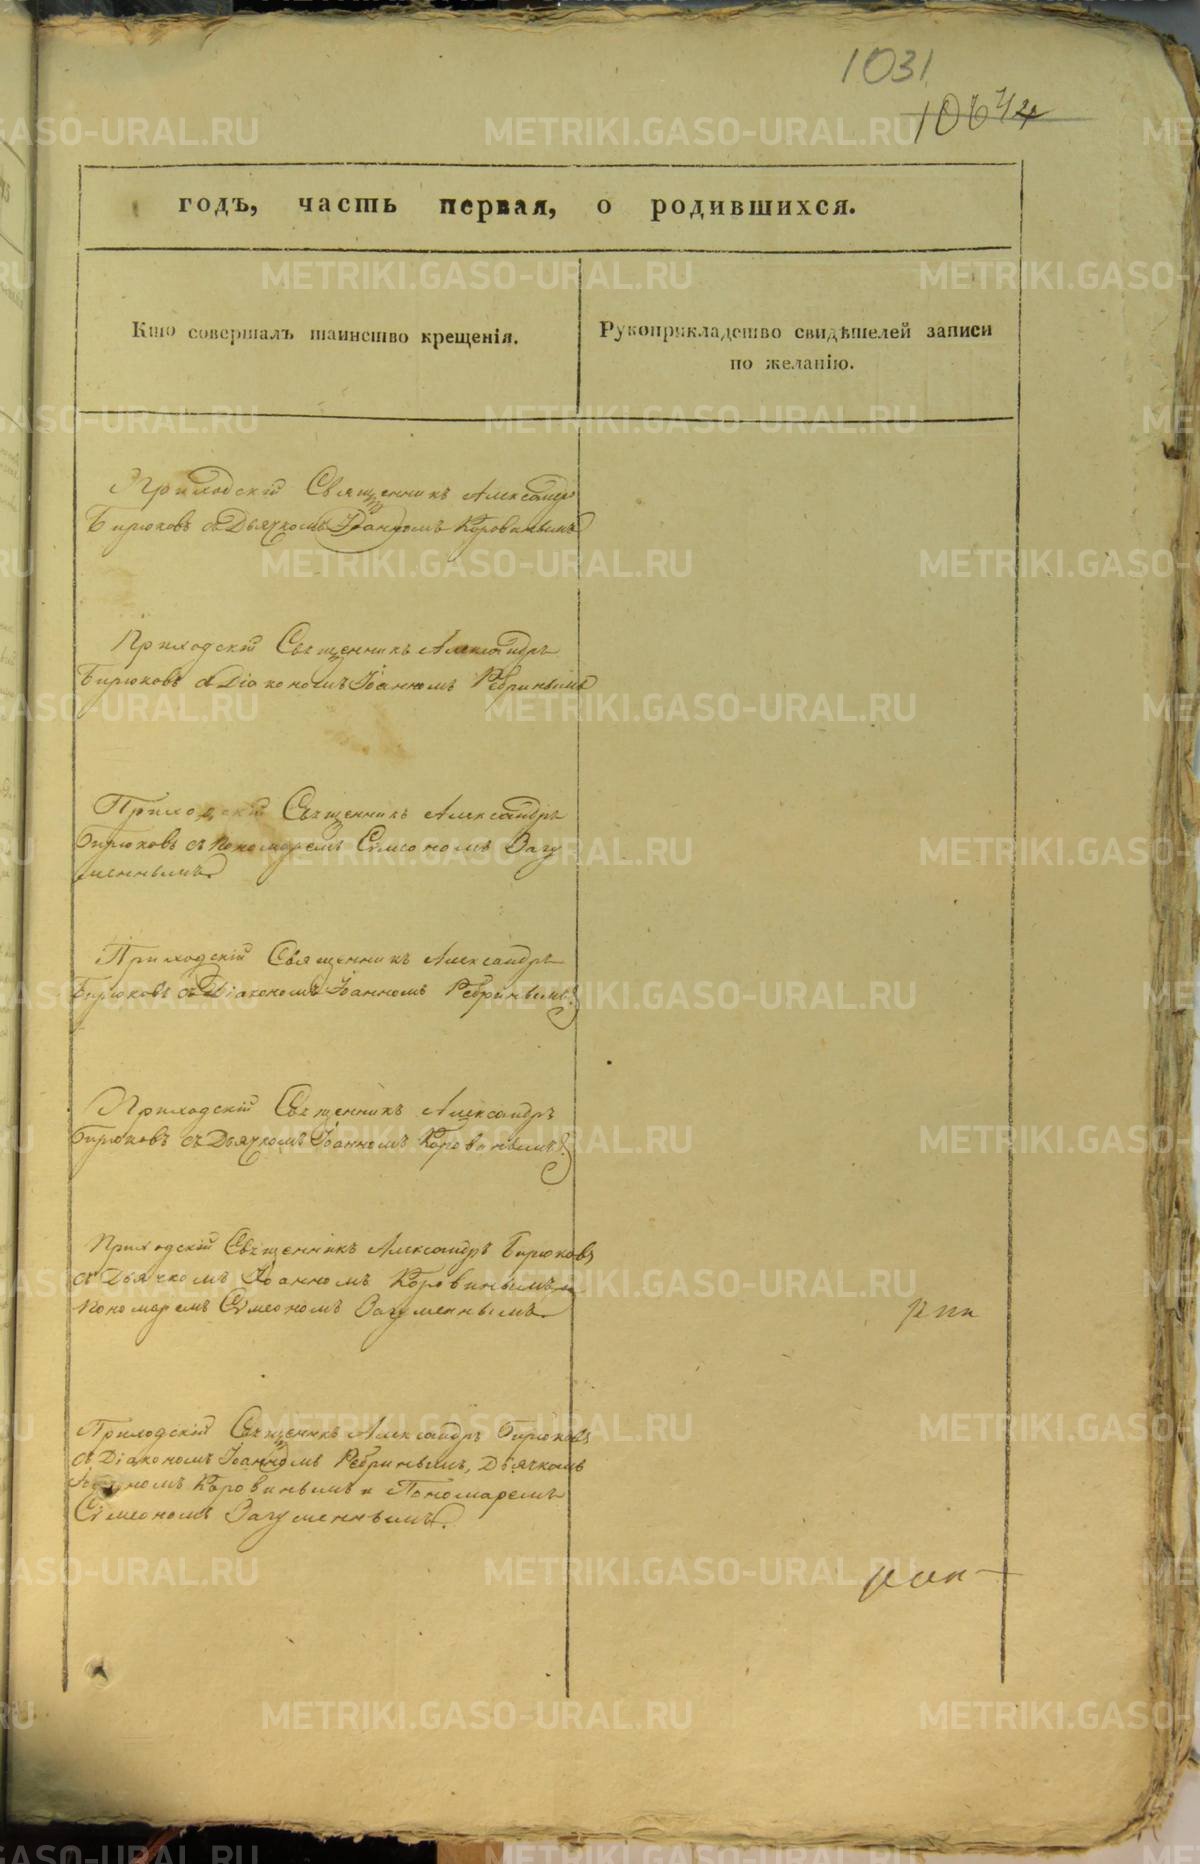 1031
годъ, часть первая, о родившихся.
Кто совершалъ таинство крещенія.
Рукоприкладство свидѣтелей записи
по желанію.
Приходскій Священникъ Александръ
Бирюковъ съ Дьячкомъ Іоанномъ Коровинымъ
Приходскій Священникъ Александръ
Бирюковъ съ Діакономъ Іоанномъ Ребринымъ
Приходскій Священникъ Александръ
Бирюковъ съ Пономаремъ Сѵмеономъ Загу
меннымъ
Приходскій Священникъ Александръ
Бирюковъ съ Діакономъ Іоанномъ Ребринымъ.
Приходскій Священникъ Александръ
Бирюковъ съ Дьячкомъ Іоанномъ Коровинымъ.
Приходскій Священникъ Александръ Бирюковъ
съ Дьячкомъ Іоанномъ Коровинымъ и
Пономаремъ Сѵмеономъ Загуменнымъ.
Приходскій Священникъ Александръ Бирюковъ
съ Діакономъ Іоанномъ Ребринымъ, Дьячкомъ
Іоанномъ Коровинымъ и Пономаремъ
Сѵмеономъ Загуменнымъ.
METRIKI.GASO-URAL.RU